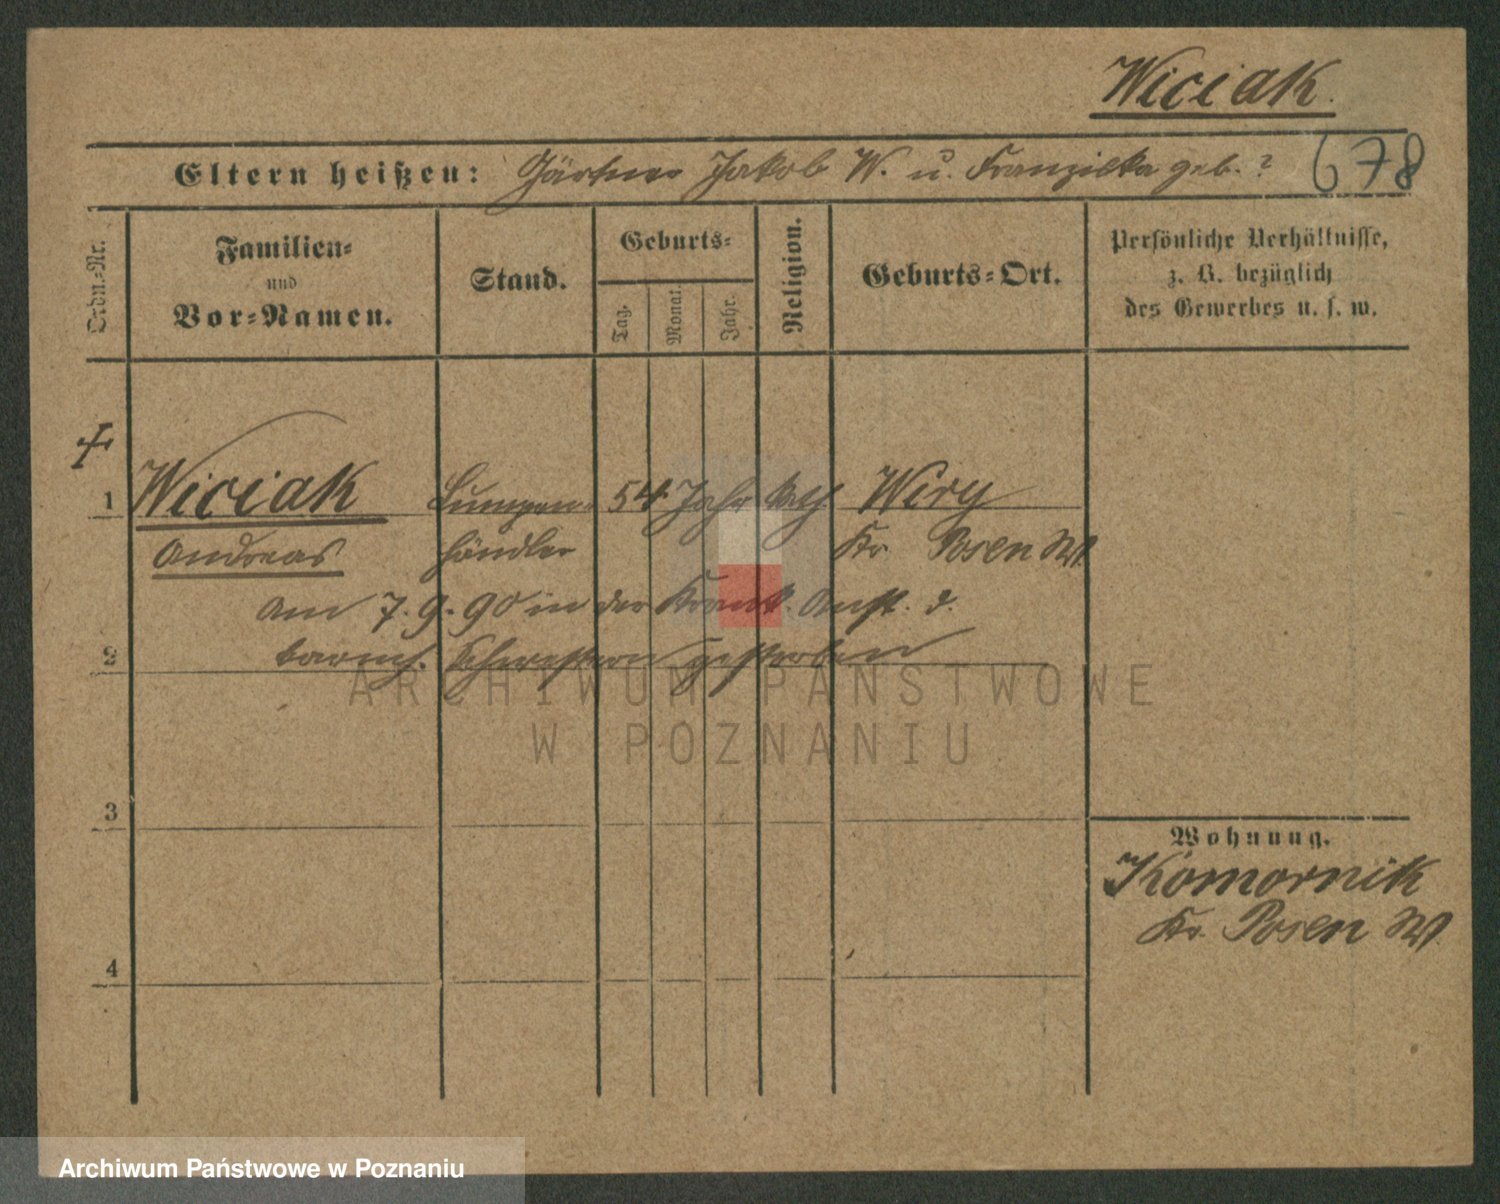 Wiciak.
Eltern heißen: Gärtner Jakob W. u. Franziska geb. ?
678
Ordn.-Nr.
Familien-
und
Vor-Namen.
Stand.
Geburts-
Tag.
Monat.
Jahr.
Religion.
Geburts-Ort.
Persönliche Verhältnisse,
z. B. bezüglich
des Gewerbes u. s. w.
1 Wiciak Lumpen- 54 Jahr kath Wiry
Andreas händler Kr. Posen W.
am 7.9.90 in der Krank. Anst. d.
2 barmh. Schwestern gestorben
ARCHIWUM PAŃSTWOWE
W POZNANIU
3
Wohnung.
Komornik
Kr. Posen W.
4
Archiwum Państwowe w Poznaniu